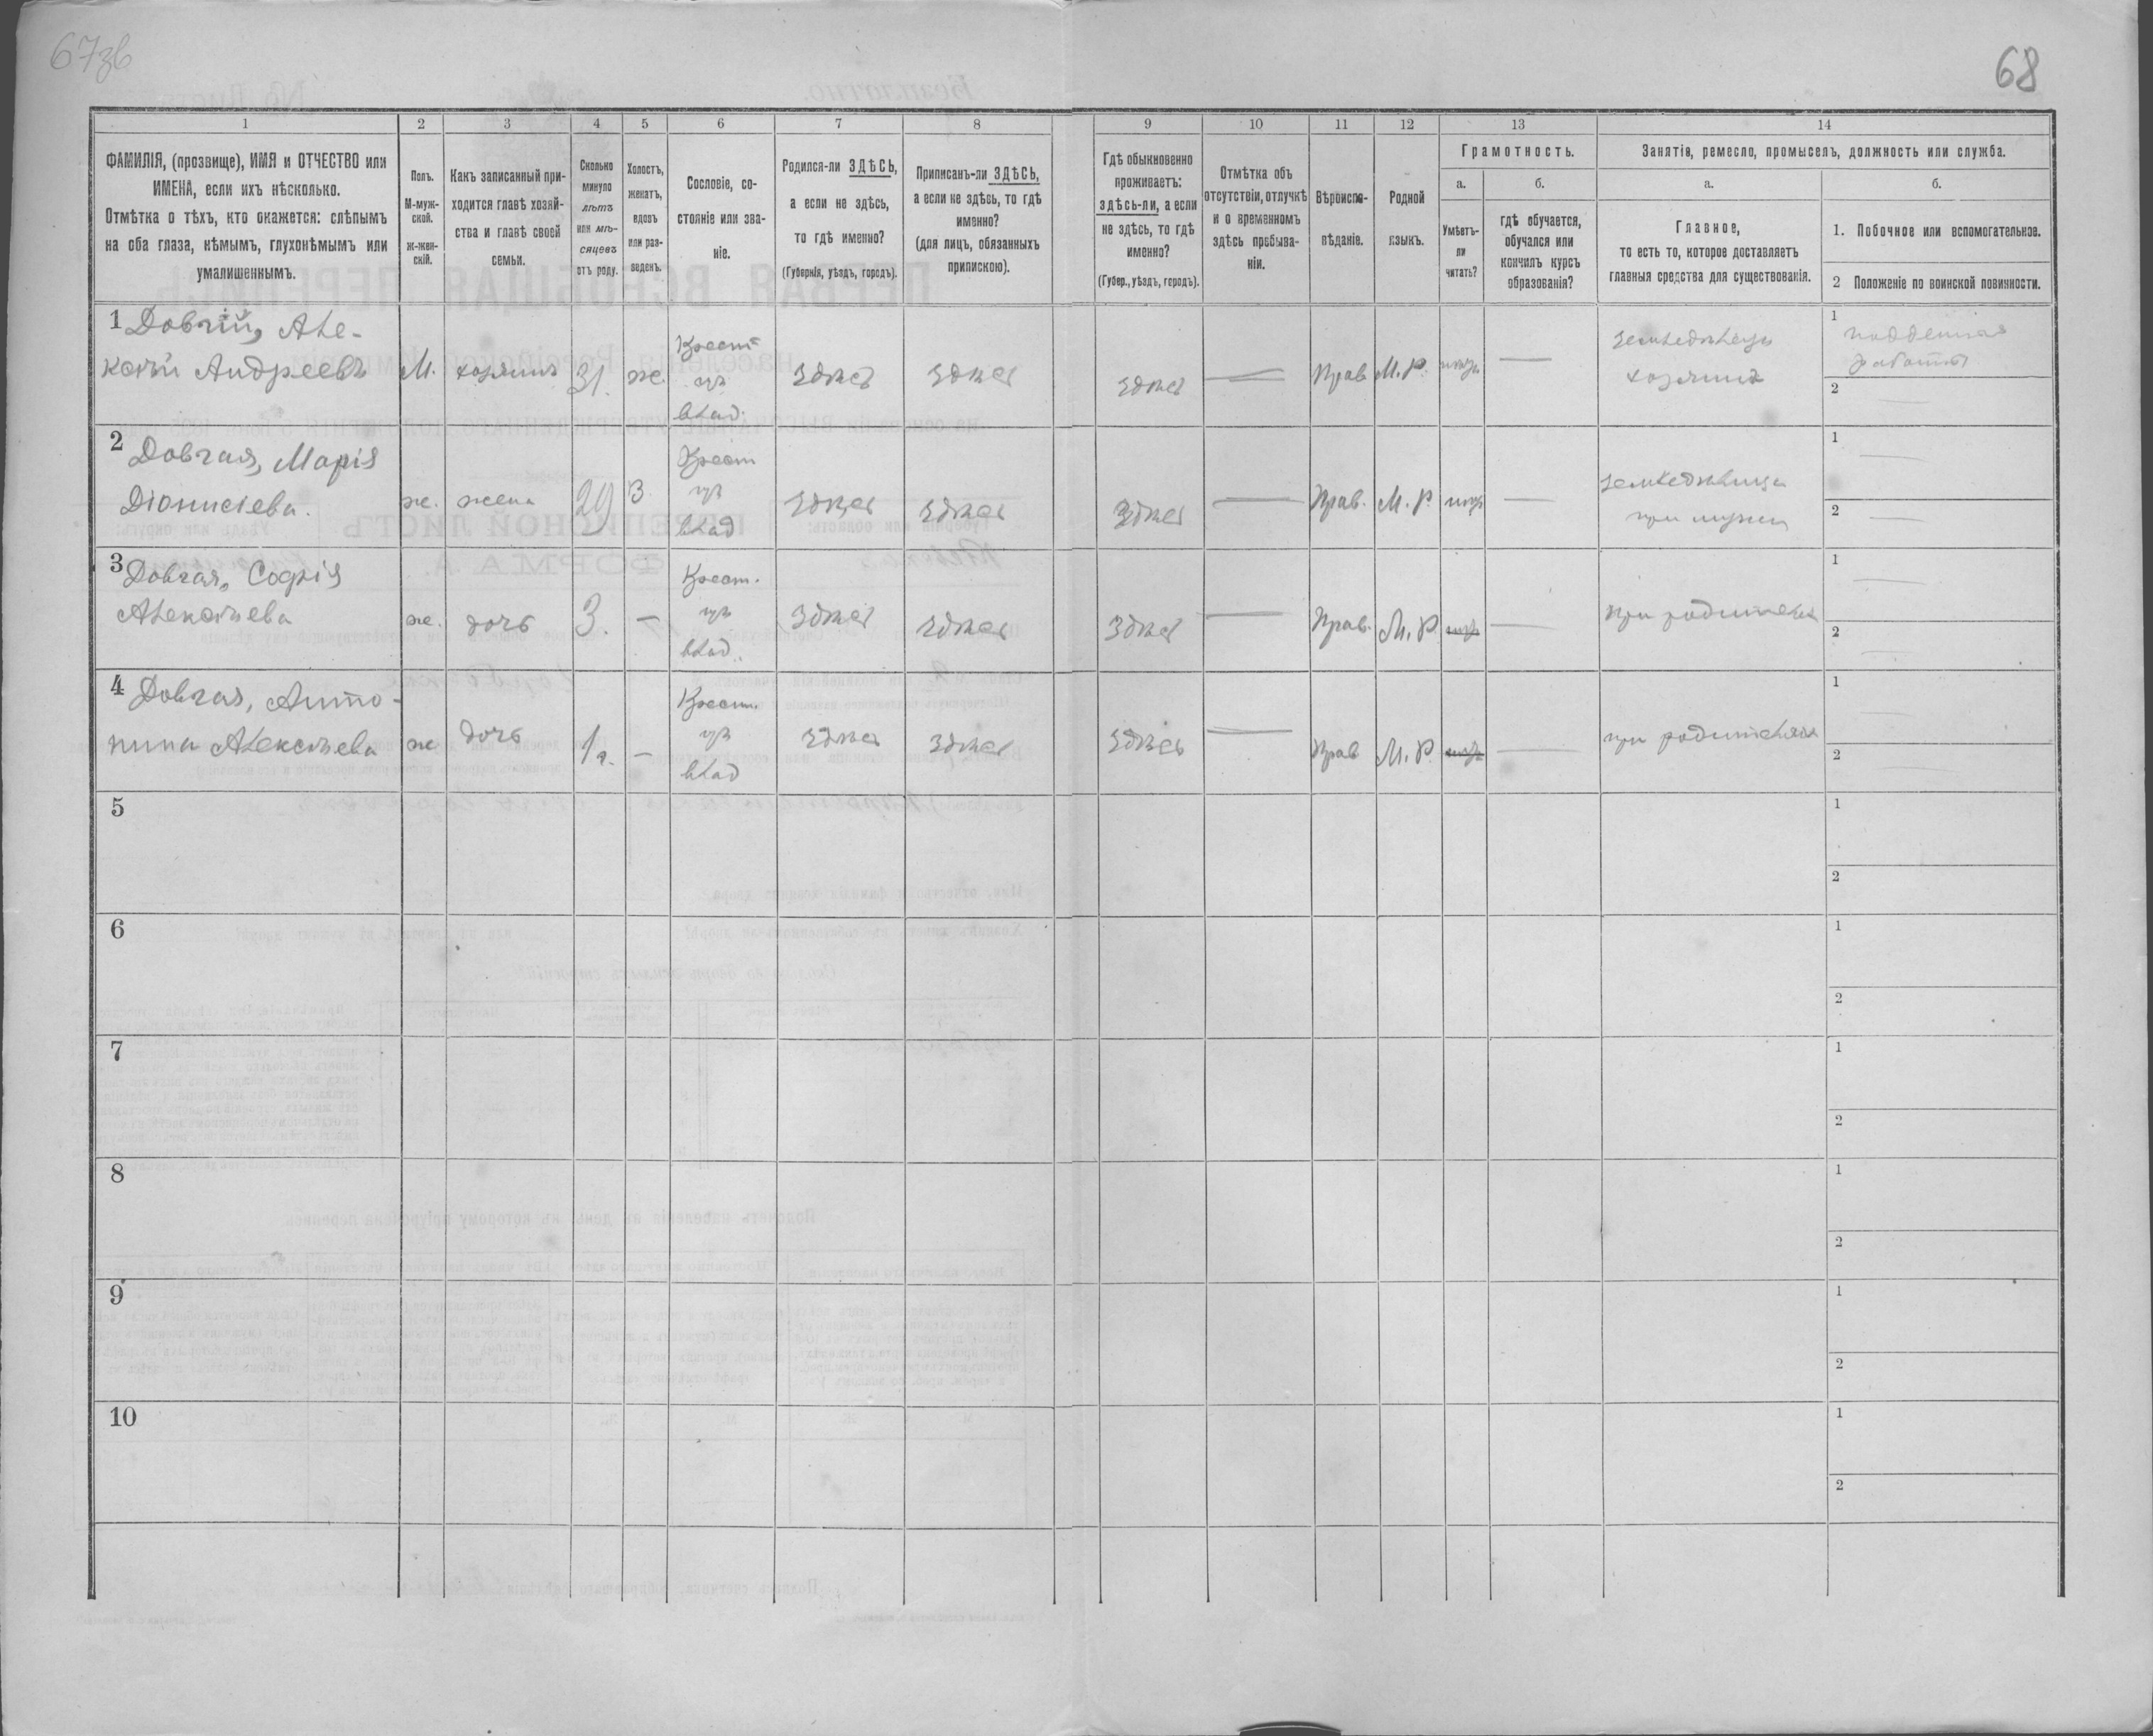 67зв
68
1
2
3
4
5
6
7
8
9
10
11
12
13
14
ФАМИЛІЯ, (прозвище), ИМЯ и ОТЧЕСТВО или
ИМЕНА, если ихъ нѣсколько.
Отмѣтка о тѣхъ, кто окажется: слѣпымъ
на оба глаза, нѣмымъ, глухонѣмымъ или
умалишеннымъ.
Полъ.
М-муж-
ской.
ж-жен-
скій.
Какъ записанный при-
ходится главѣ хозяй-
ства и главѣ своей
семьи.
Сколько
минуло
лѣтъ
или мѣ-
сяцевъ
отъ роду.
Холостъ,
женатъ,
вдовъ
или раз-
веденъ.
Сословіе, со-
стояніе или зва-
ніе.
Родился-ли ЗДѢСЬ,
а если не здѣсь,
то гдѣ именно?
(Губернія, уѣздъ, городъ).
Приписанъ-ли ЗДѢСЬ,
а если не здѣсь, то гдѣ
именно?
(для лицъ, обязанныхъ
припискою).
Гдѣ обыкновенно
проживаетъ:
здѣсь-ли, а если
не здѣсь, то гдѣ
именно?
(Губер., уѣздъ, городъ).
Отмѣтка объ
отсутствіи, отлучкѣ
и о временномъ
здѣсь пребыва-
ніи.
Вѣроиспо-
вѣданіе.
Родной
языкъ.
Грамотность.
а.
Умѣетъ-
ли
читать?
б.
гдѣ обучается,
обучался или
кончилъ курсъ
образованія?
Занятія, ремесло, промыселъ, должность или служба.
а.
Главное,
то есть то, которое доставляетъ
главныя средства для существованія.
б.
1. Побочное или вспомогательное.
2 Положеніе по воинской повинности.
1 Довгій, Але-
ксѣй Андреевъ
М.
хозяинъ
31.
ж.
Крест
изъ
влад.
здѣсь
здѣсь
здѣсь
Прав
М. Р.
земледѣлецъ
хозяинъ
1
поденная
работа
2
2 Довгая, Марія
Діонисіева.
ж.
жена
29
З
Крест
изъ
влад
здѣсь
здѣсь
здѣсь
Прав.
М. Р.
земледѣлица
при мужѣ
1
2
3 Довгая, Софія
Алексѣева
ж.
дочь
3.
–
Крест.
изъ
влад.
здѣсь
здѣсь
здѣсь
Прав.
М. Р.
при родителяхъ
1
2
4 Довгая, Анто-
нина Алексѣева
ж
дочь
1 г.
–
Крест.
изъ
влад
здѣсь
здѣсь
здѣсь
Прав
М. Р.
при родителяхъ
1
2
5
1
2
6
1
2
7
1
2
8
1
2
9
1
2
10
1
2